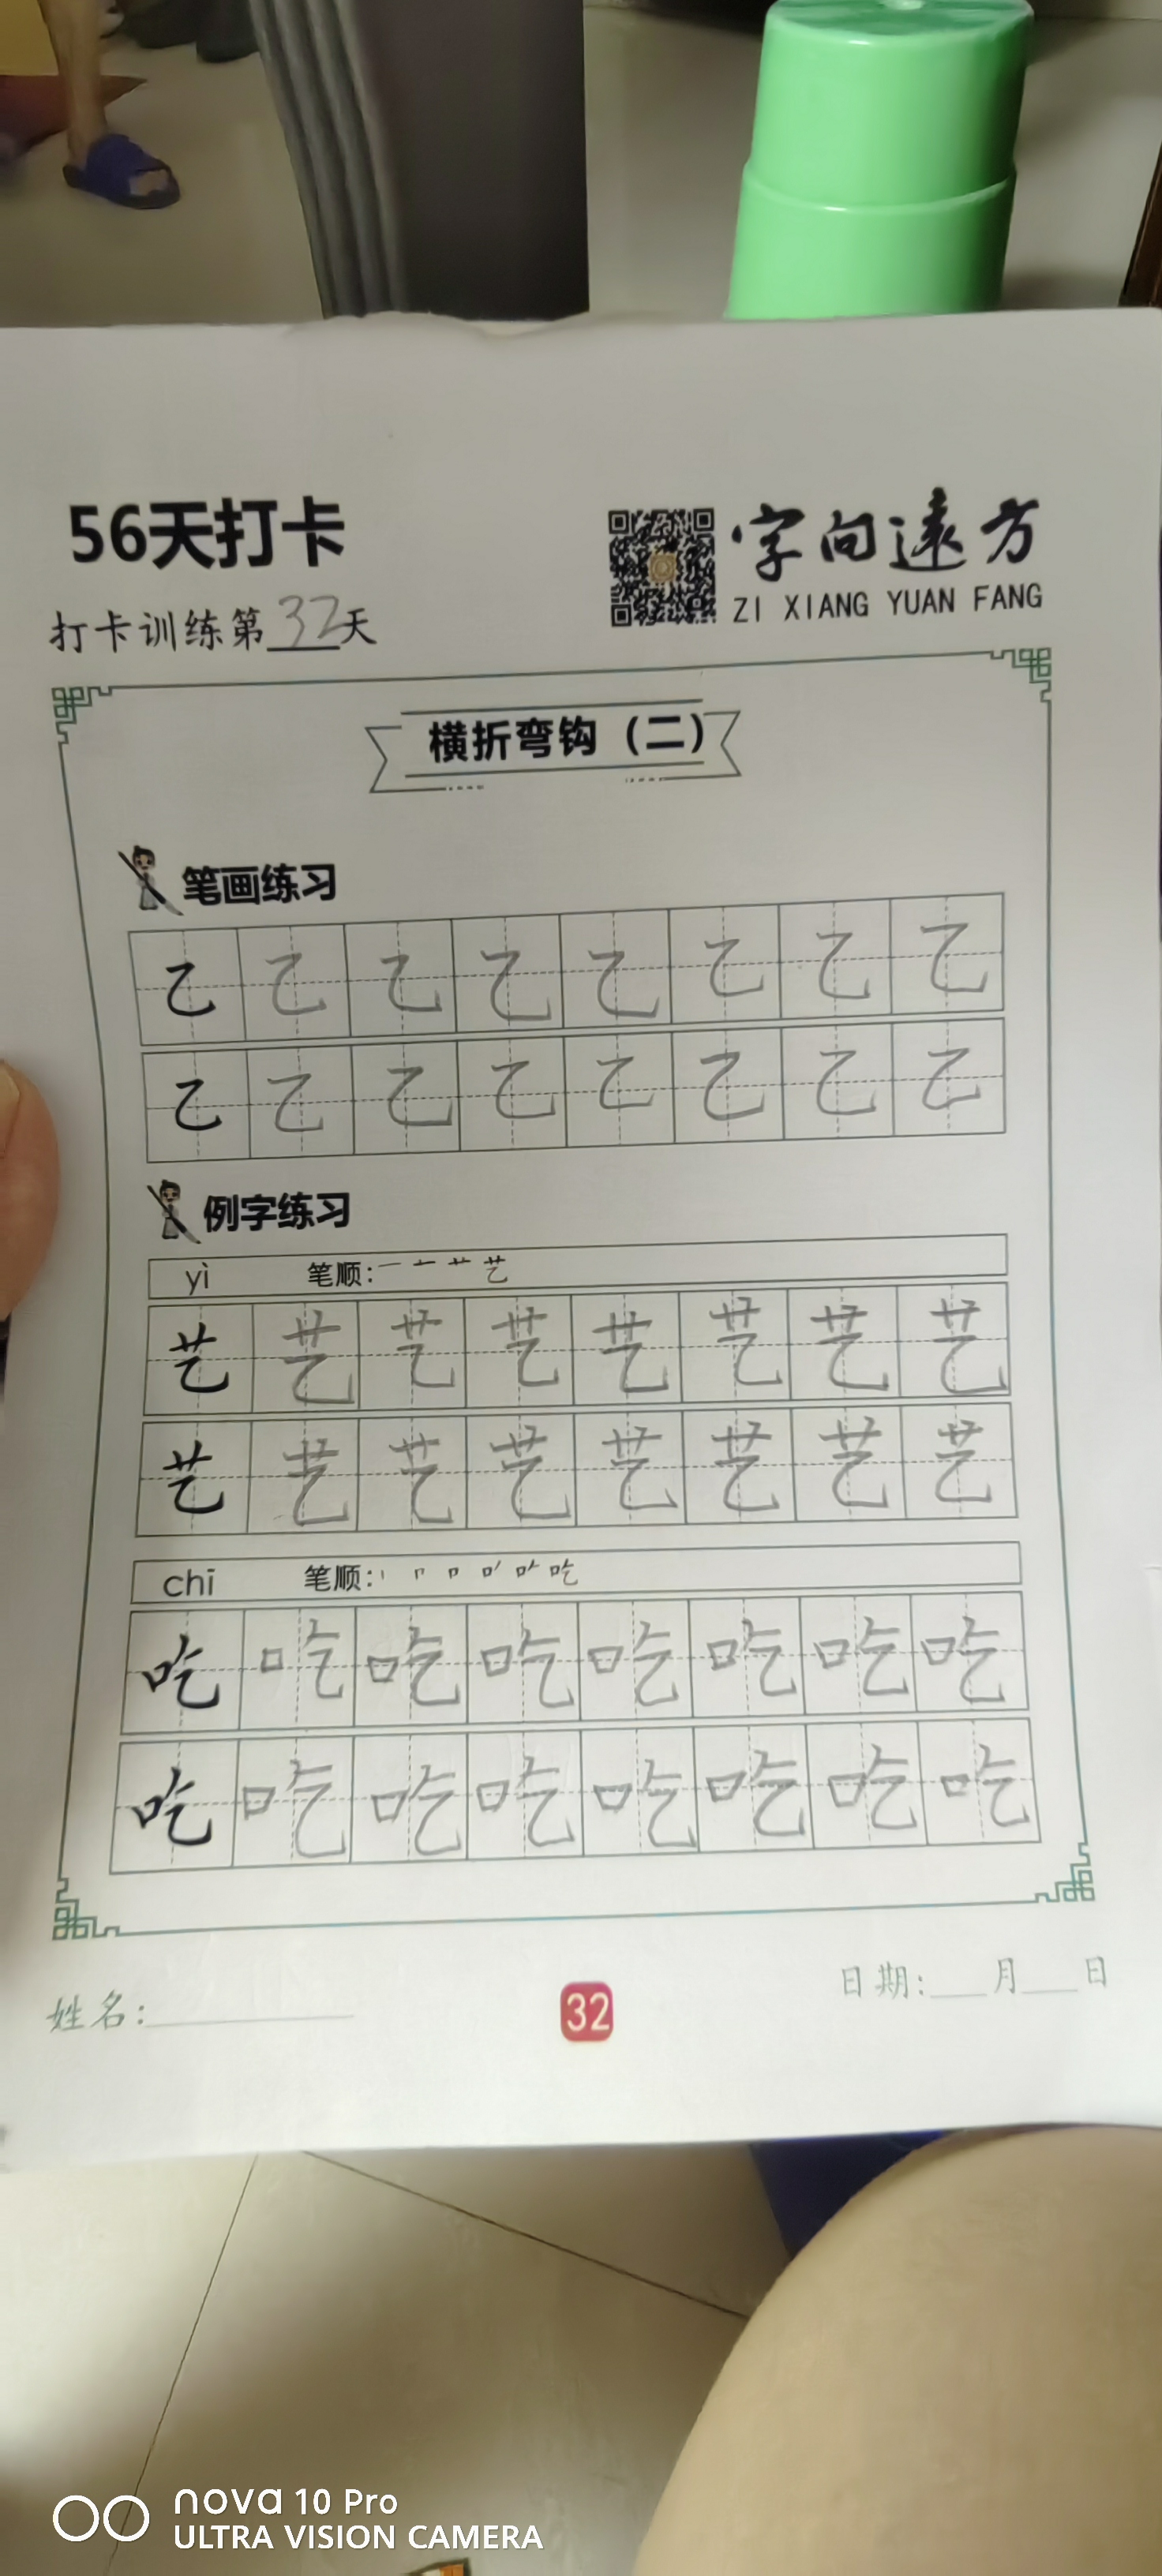 56天打卡
字向遠方
ZI XIANG YUAN FANG
打卡训练第32天
横折弯钩（二）
笔画练习
乙 乙 乙 乙 乙 乙 乙 乙
乙 乙 乙 乙 乙 乙 乙 乙
例字练习
yì 笔顺: 一 艹 艺
艺 艺 艺 艺 艺 艺 艺 艺
艺 艺 艺 艺 艺 艺 艺 艺
chī 笔顺: 丨 口 吃
吃 吃 吃 吃 吃 吃 吃 吃
吃 吃 吃 吃 吃 吃 吃 吃
姓名:
32
日期: 月 日
nova 10 Pro
ULTRA VISION CAMERA